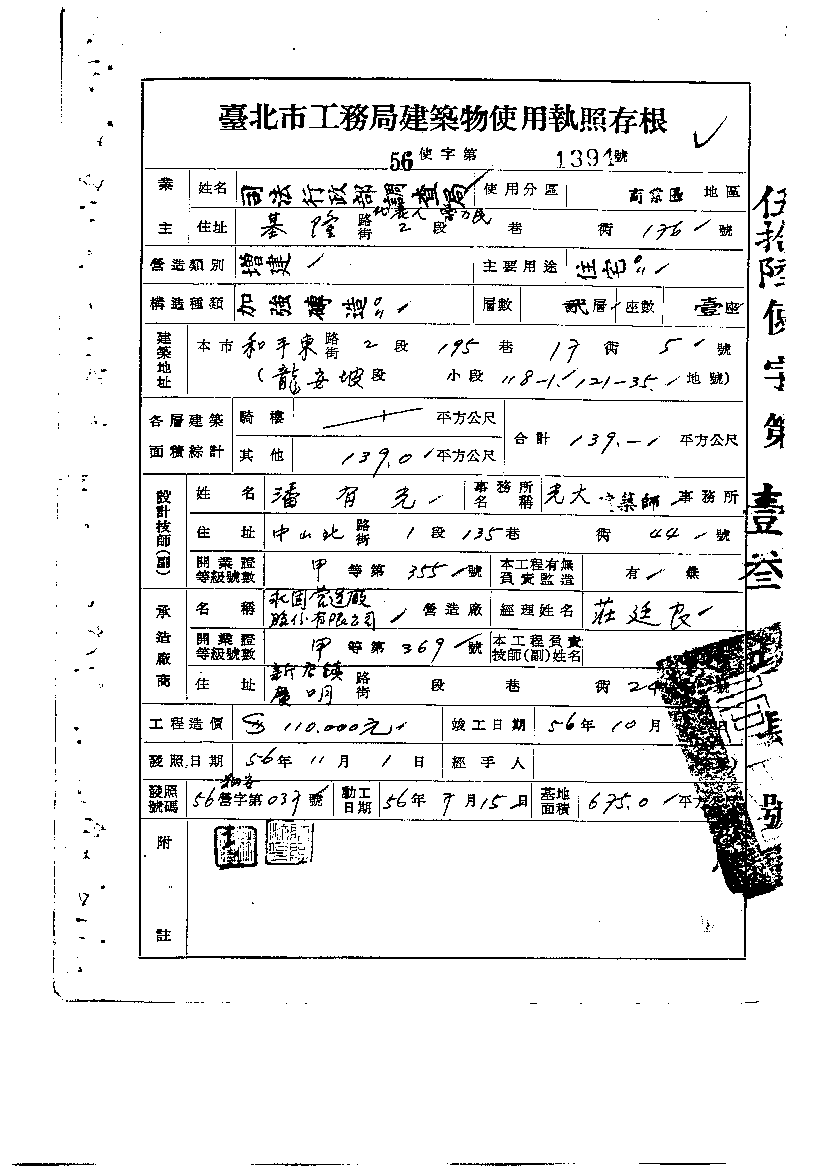 臺北市工務局建築物使用執照存根
56使字第 1391號
業主 姓名 司法行政部調查局 使用分區 商業區 地區
住址 基隆 路街 2 段 巷 衖 176 號
營造類別 增建 主要用途 住宅
構造種類 加強磚造 層數 貳層 座數 壹座
建築地址 本市 和平東 路街 2 段 195 巷 17 衖 5 號
(龍安坡段 小段 118-1、121-35 地號)
各層建築面積綜計 騎樓 平方公尺 合計 139.- 平方公尺
其他 139.0 平方公尺
設計技師(副) 姓名 潘有光 事務所名稱 光大建築師事務所
住址 中山北 路街 1 段 135 巷 衖 44 號
開業證等級號數 甲 等第 355 號 本工程有無員責監造 有 無
承造廠商 名稱 永固營造廠股份有限公司 營造廠 經理姓名 莊廷良
開業證等級號數 甲 等第 369 號 本工程員責技師(副)姓名
住址 新店鎮 路街 段 巷 衖 24 號
工程造價 110.000元 竣工日期 56年 10月
發照日期 56年 11月 1日 經手人
發照號碼 56營字第 037 號 動工日期 56年 7月 15日 基地面積 675.0 平方
附註
伍拾陸使字第壹叁 號